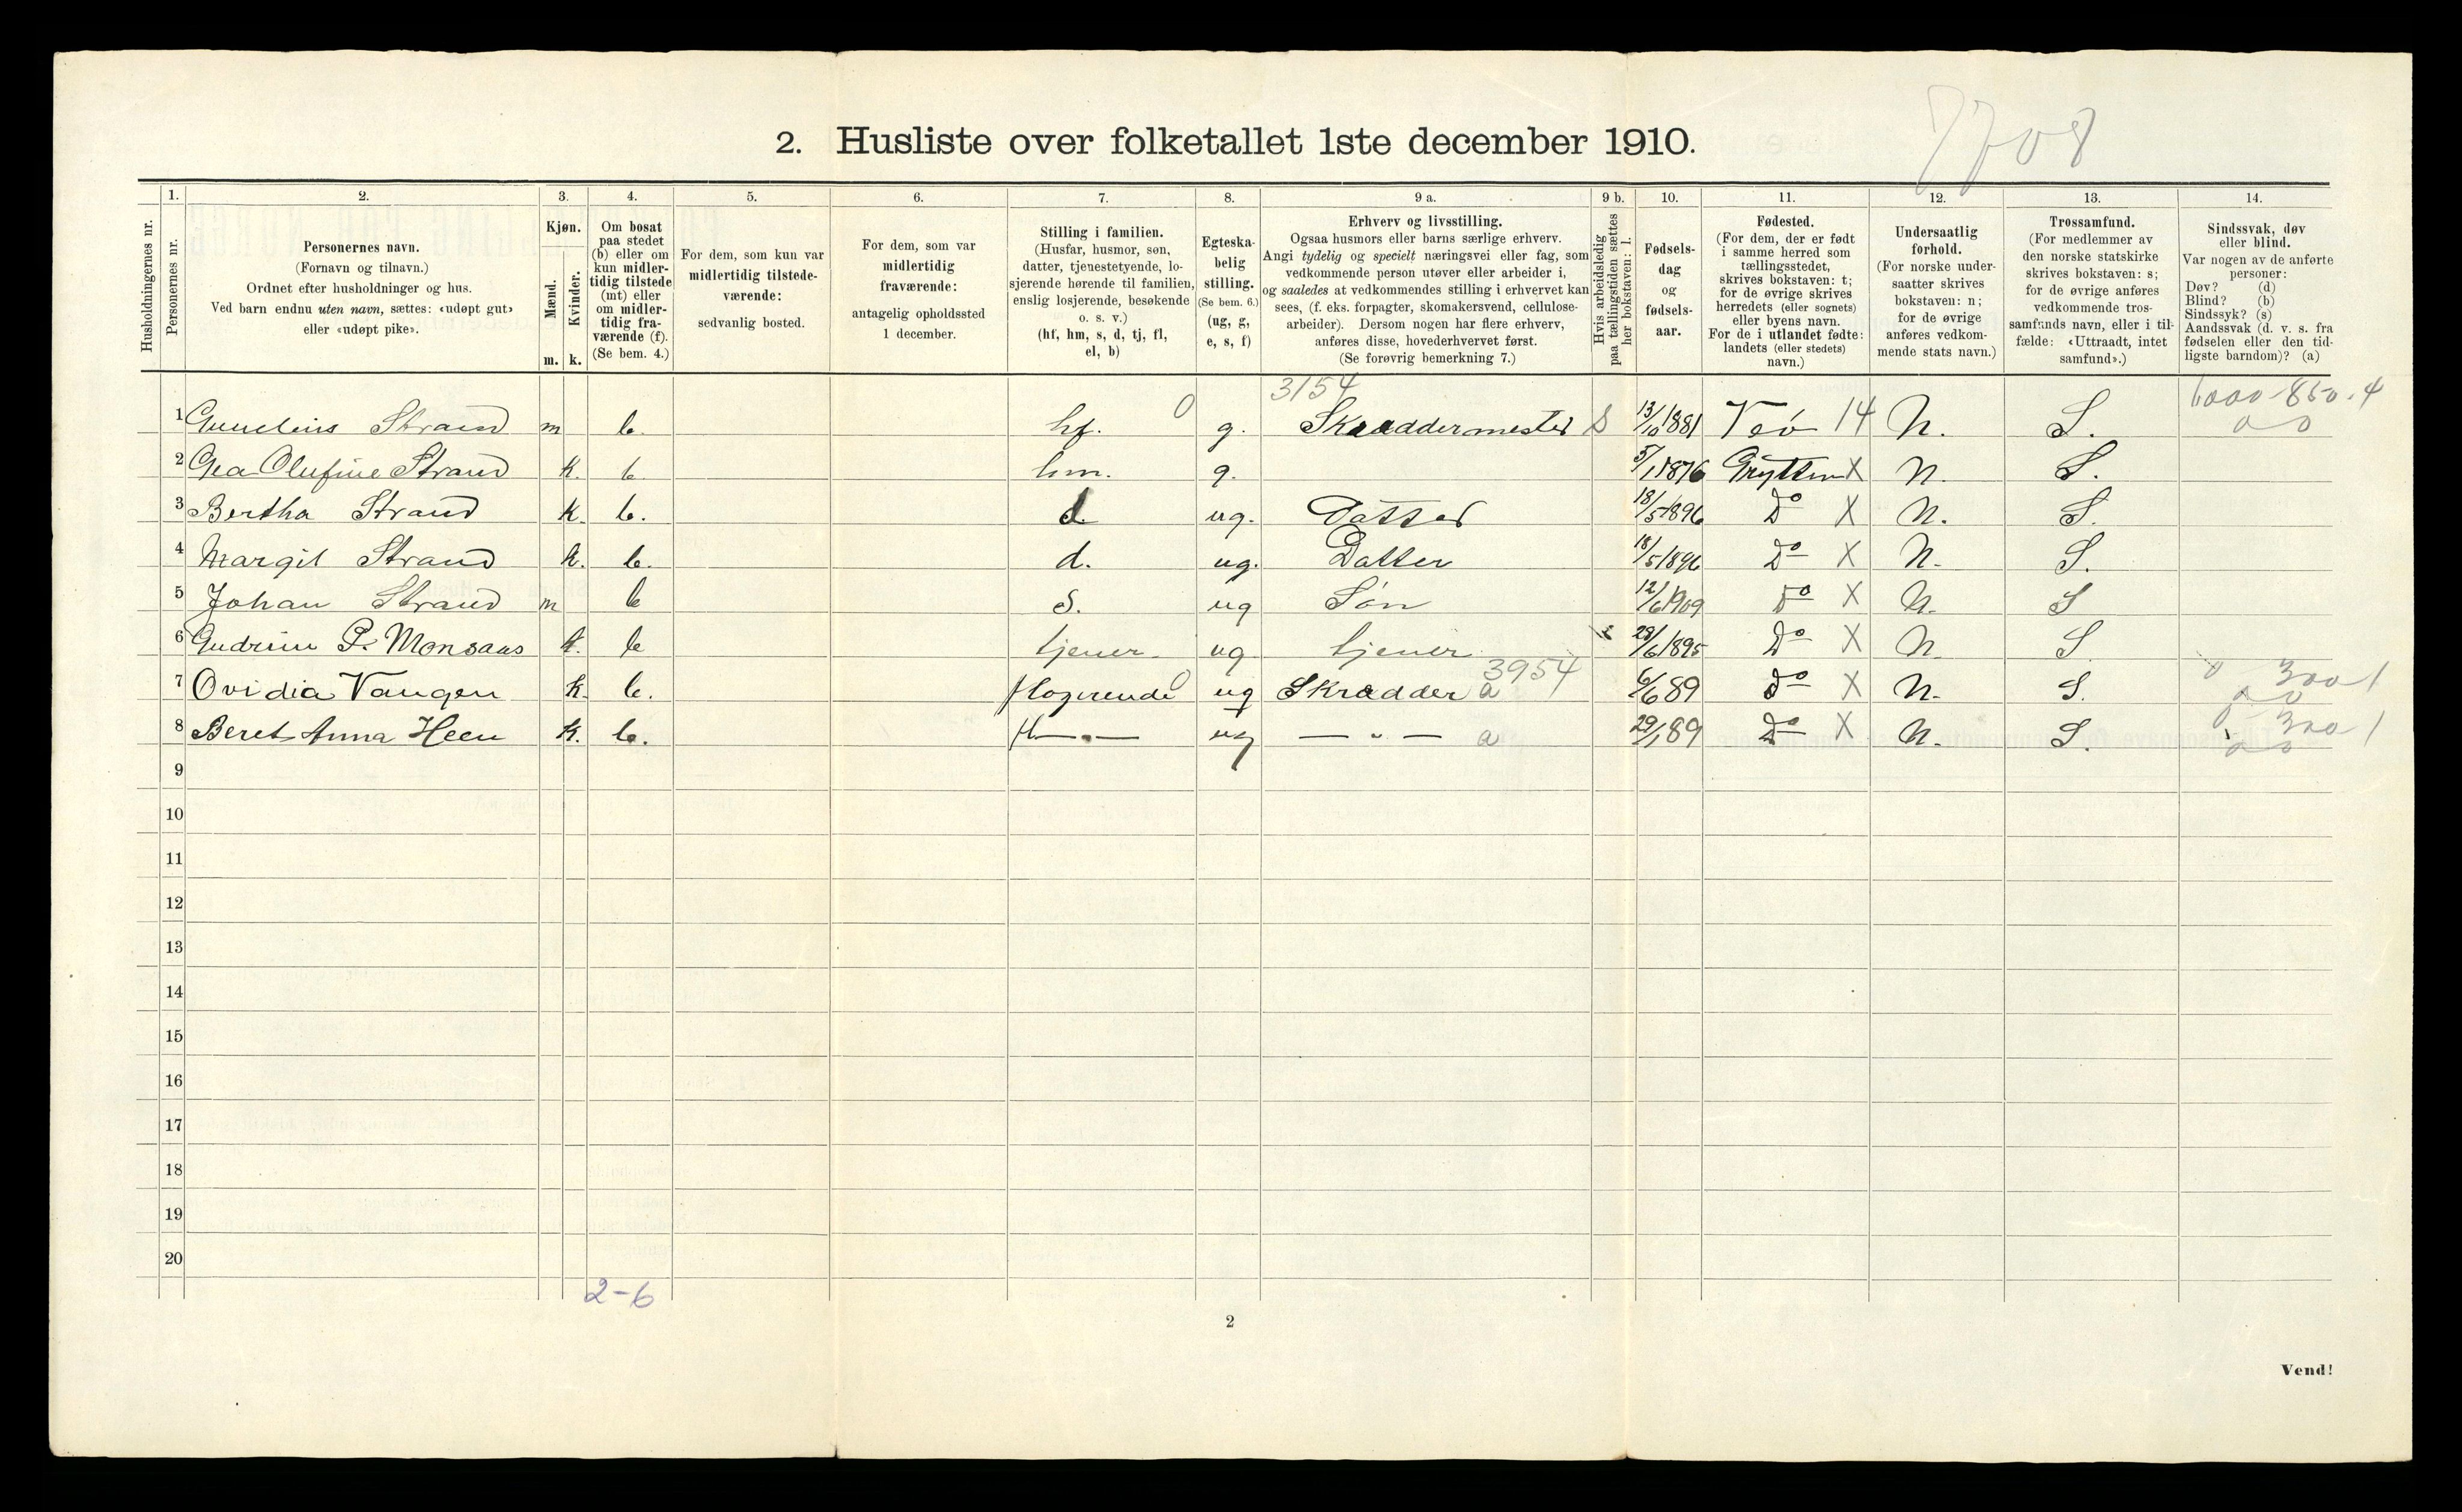 7708
2. Husliste over folketallet 1ste december 1910.
Husholdningernes nr.
1. Personernes nr.
2. Personernes navn.
(Fornavn og tilnavn.)
Ordnet efter husholdninger og hus.
Ved barn endnu uten navn, sættes: «udøpt gut»
eller «udøpt pike».
3. Kjøn.
Mænd. Kvinder.
m. k.
4. Om bosat
paa stedet
(b) eller om
kun midler-
tidig tilstede
(mt) eller
om midler-
tidig fra-
værende (f).
(Se bem. 4.)
5. For dem, som kun var
midlertidig tilstede-
værende:
sedvanlig bosted.
6. For dem, som var
midlertidig
fraværende:
antagelig opholdssted
1 december.
7. Stilling i familien.
(Husfar, husmor, søn,
datter, tjenestetyende, lo-
sjerende hørende til familien,
enslig losjerende, besøkende
o. s. v.)
(hf, hm, s, d, tj, fl,
el, b)
8. Egteska-
belig
stilling.
(Se bem. 6.)
(ug, g,
e, s, f)
9 a. Erhverv og livsstilling.
Ogsaa husmors eller barns særlige erhverv.
Angi tydelig og specielt næringsvei eller fag, som
vedkommende person utøver eller arbeider i,
og saaledes at vedkommendes stilling i erhvervet kan
sees, (f. eks. forpagter, skomakersvend, cellulose-
arbeider). Dersom nogen har flere erhverv,
anføres disse, hovederhvervet først.
(Se forøvrig bemerkning 7.)
9 b. Hvis arbeidsledig
paa tællingstiden sættes
her bokstaven: l.
10. Fødsels-
dag
og
fødsels-
aar.
11. Fødested.
(For dem, der er født
i samme herred som
tællingsstedet,
skrives bokstaven: t;
for de øvrige skrives
herredets (eller sognets)
eller byens navn.
For de i utlandet fødte:
landets (eller stedets)
navn.)
12. Undersaatlig
forhold.
(For norske under-
saatter skrives
bokstaven: n;
for de øvrige
anføres vedkom-
mende stats navn.)
13. Trossamfund.
(For medlemmer av
den norske statskirke
skrives bokstaven: s;
for de øvrige anføres
vedkommende tros-
samfunds navn, eller i til-
fælde: «Uttraadt, intet
samfund».)
14. Sindssvak, døv
eller blind.
Var nogen av de anførte
personer:
Døv? (d)
Blind? (b)
Sindssyk? (s)
Aandssvak (d. v. s. fra
fødselen eller den tid-
ligste barndom)? (a)
3154
1 Strand m b. hf. 0 g. Skraddermester S 13/10 1881 Veö 14 N. S. 6000-850.4
2 Gea Olufine Strand k. b. hm. g. 5/1 1876 Grytten X N. S.
3 Bertha Strand k. b. d. ug. Datter 18/5 1896 Do X N. S.
4 Margit Strand k. b. d. ug. Datter 18/5 1896 Do X N. S.
5 Johan Strand m b s. ug Søn 12/6 1909 Do X N. S
6 Gudrun P. Monsaas k. b tjener ug tjener 28/6 1895 Do X N. S
3954
7 Ovidia Vangen k. b. flogerende 0 ug Skradder a 6/6 89 do X N. S. 300 1
8 Beret Anna Heen k. b. fl — " — ug — " — a 29/1 89 Do X N. S. 300 1
9
10
11
12
13
14
15
16
17
18
19
20
2-6
2
Vend!